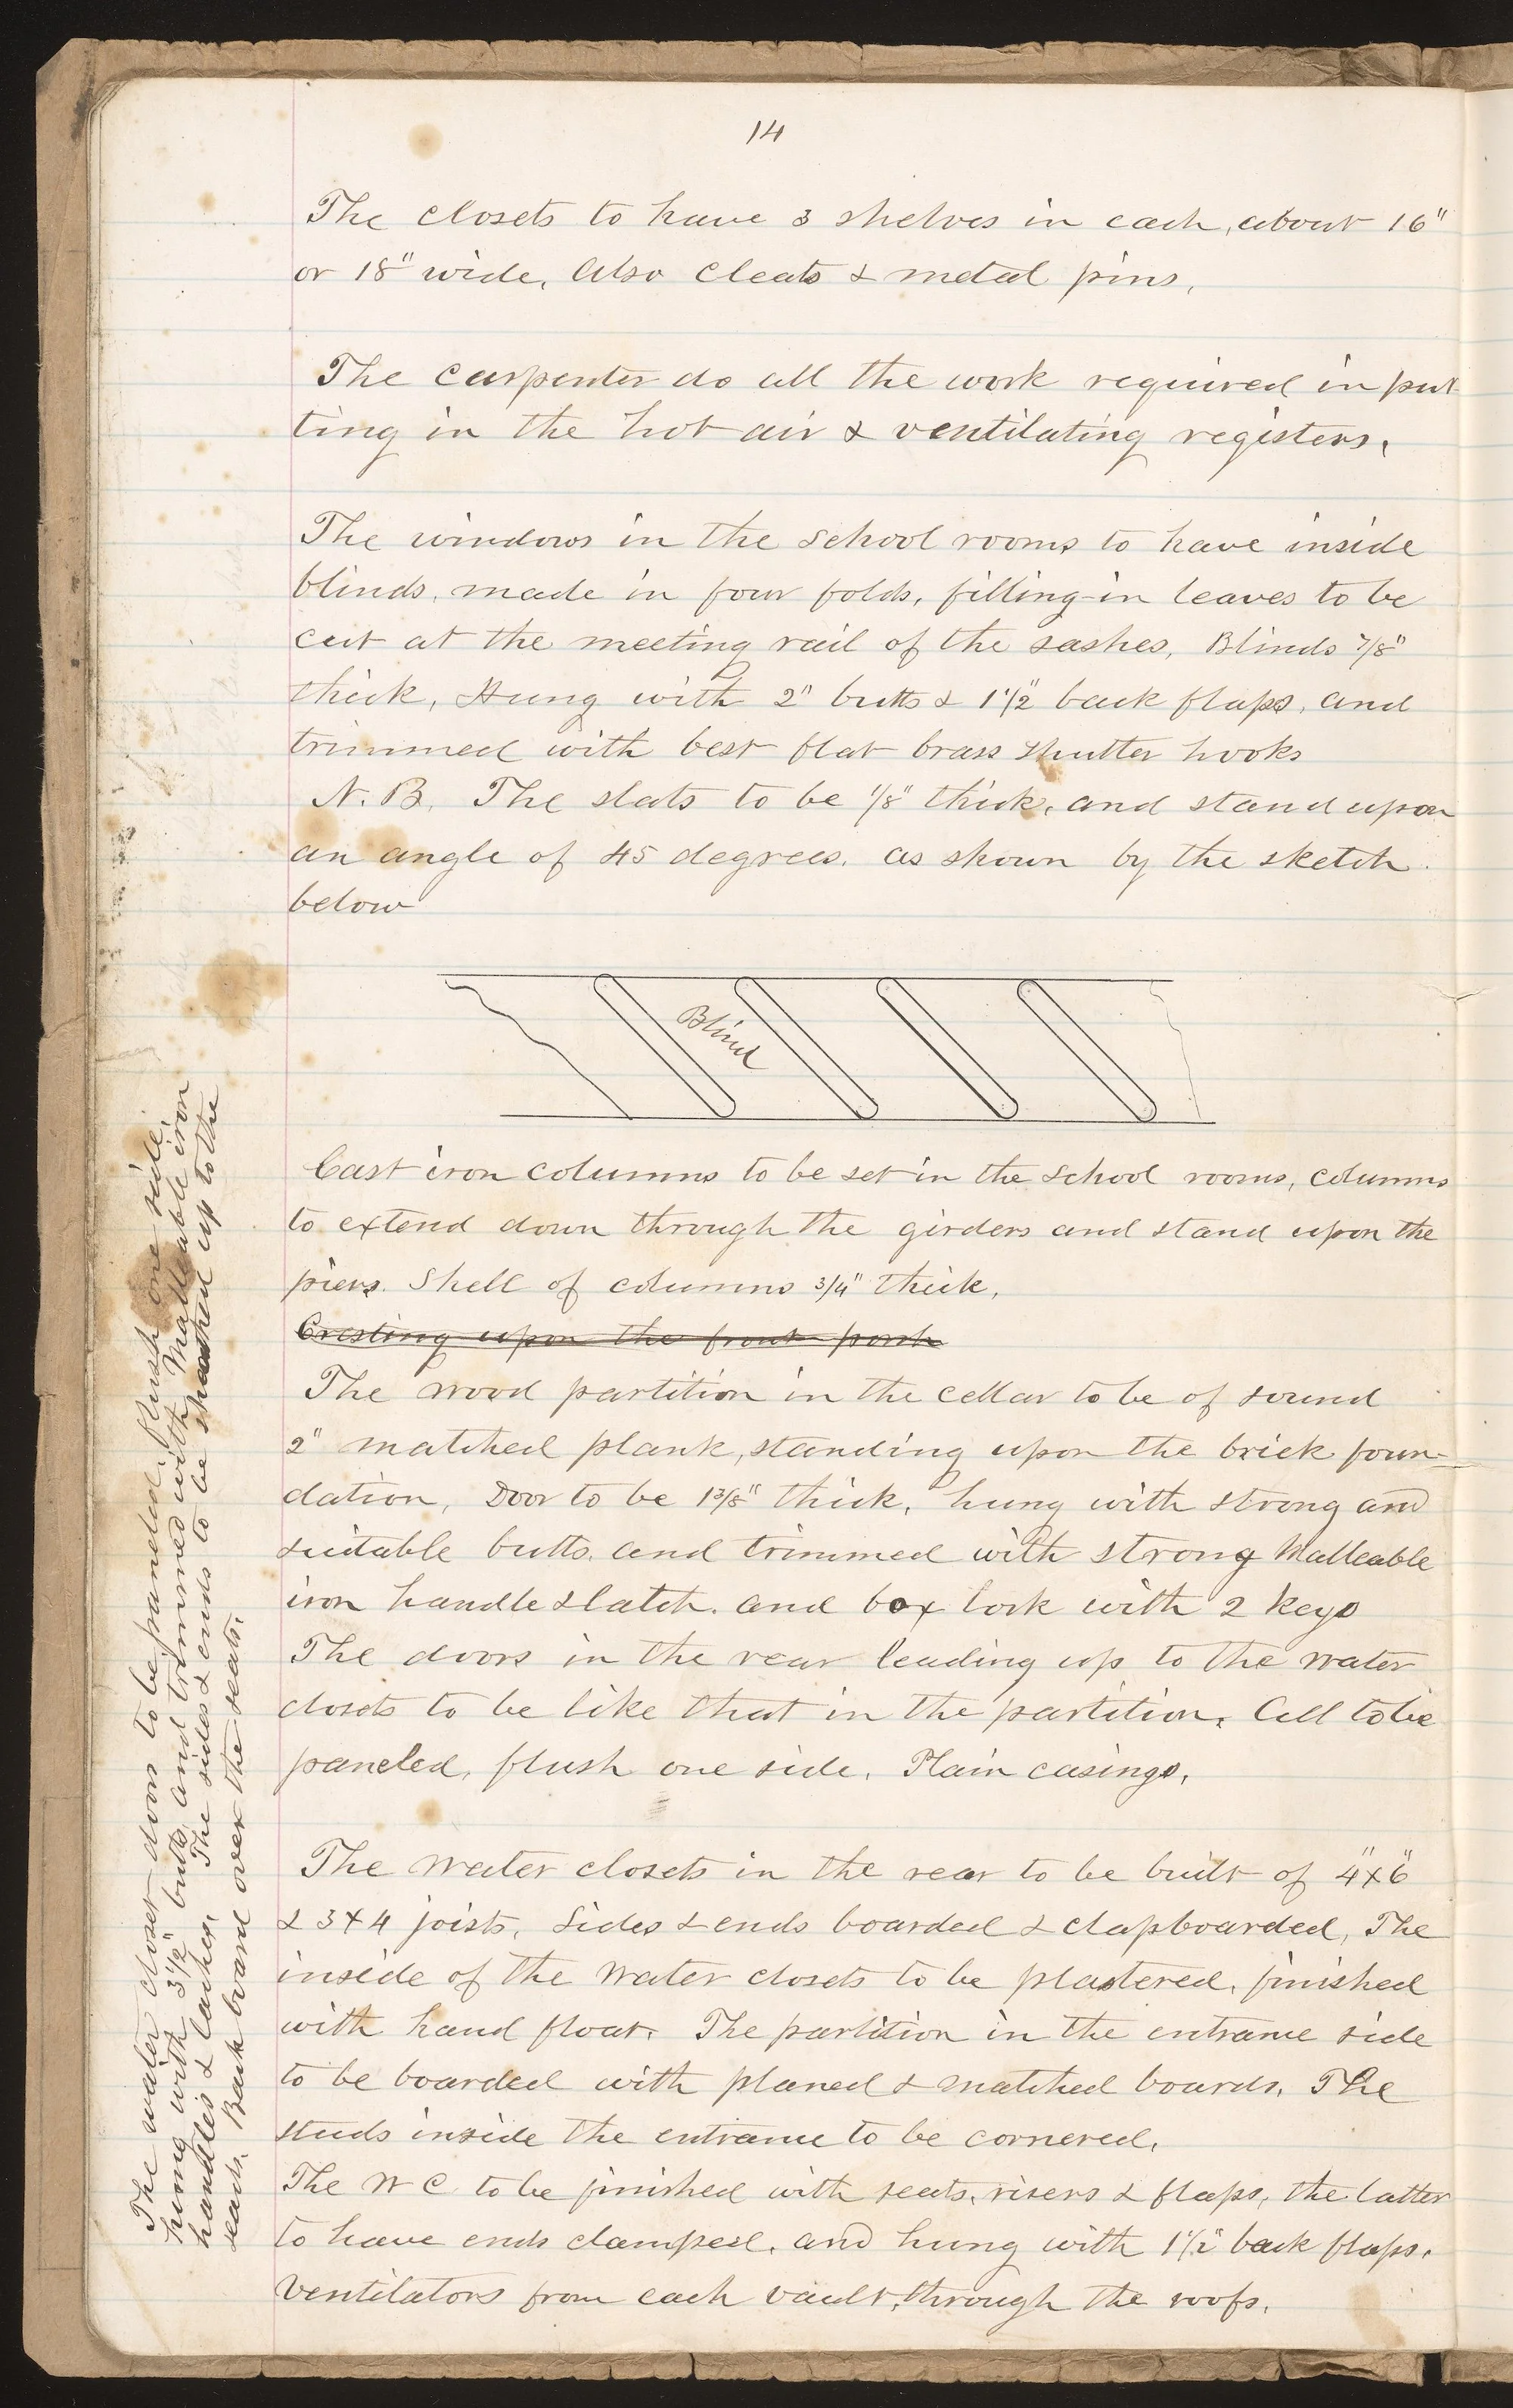 14
The closets to have 3 shelves in each, about 16"
or 18" wide. Also cleats & metal pins.
The carpenter do all the work required in put
ting in the hot air & ventilating registers.
The windows in the school rooms to have inside
blinds, made in four folds, filling-in leaves to be
cut at the meeting rail of the sashes, Blinds 7/8"
thick, Hung with 2" butts & 1 1/2" back flaps, and
trimmed with best flat brass shutter hooks
N.B. The slats to be 1/8" thick, and stand upon
an angle of 45 degrees, as shown by the sketch
below
Blind
Cast iron columns to be set in the school rooms, columns
to extend down through the girders and stand upon the
piers. Shell of columns 3/4" thick.
Cresting upon the front porch
The wood partition in the cellar to be of sound
2" matched plank, standing upon the brick foun-
dation, Door to be 1 3/8" thick, hung with strong and
suitable butts, and trimmed with strong Malleable
iron handle & latch, and box lock with 2 keys
The doors in the rear leading up to the water
closets to be like that in the partition. All to be
paneled, flush one side, Plain casings.
The water closets in the rear to be built of 4"x6"
& 3x4 joists, Sides & ends boarded & clapboarded, The
inside of the water closets to be plastered, finished
with hand float. The partition in the entrance side
to be boarded with planed & matched boards. The
studs inside the entrance to be cornered.
The W C to be finished with seats, risers & flaps, the latter
to have ends clamped, and hung with 1 1/2" back flaps.
Ventilators from each vault, through the roofs.
The water closet doors to be paneled, flush one side,
hung with 3 1/2" butts, and trimmed with Malleable iron
handles & latches. The sides & ends to be sheathed up to the
seats. Back board over the seats.